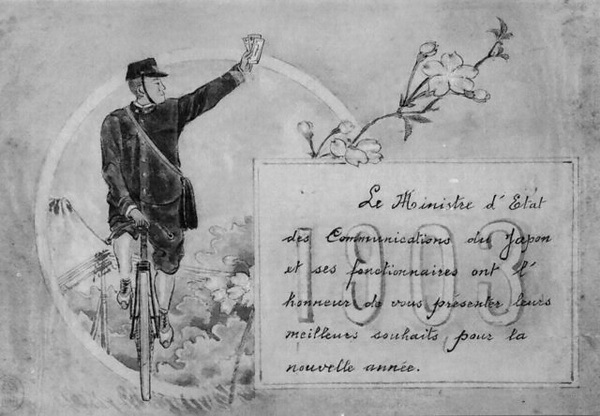 Le Ministre d'Etat
des Communications du Japon
et ses fonctionnaires ont l'
honneur de vous présenter leurs
meilleurs souhaits pour la
nouvelle année.
1903